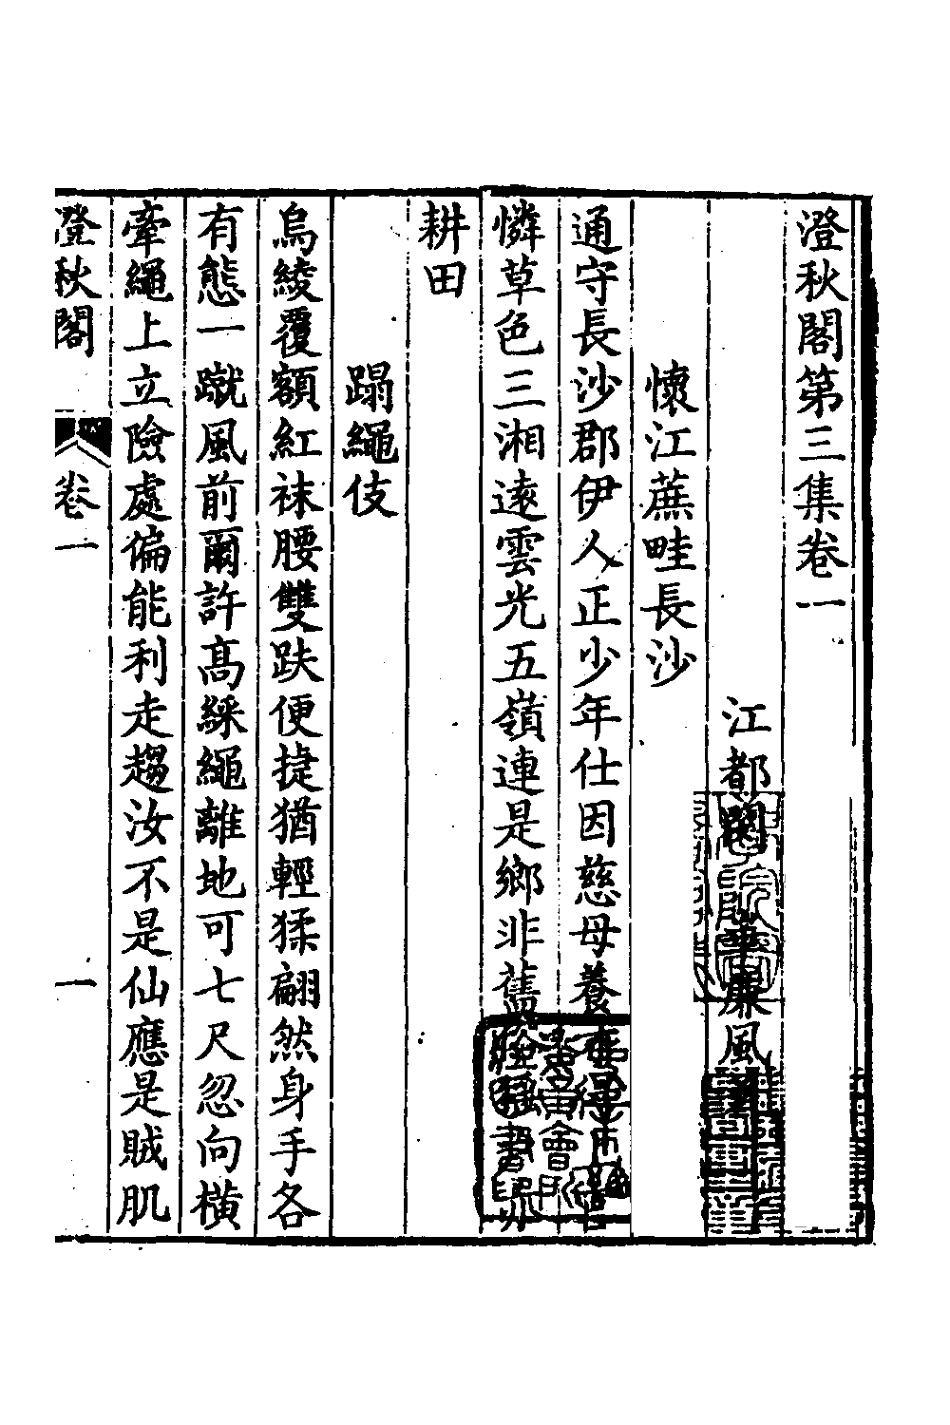 澄秋閣第三集卷一
江都閔華廉風
懷江蔗畦長沙
通守長沙郡伊人正少年仕因慈母養
憐草色三湘遠雲光五嶺連是鄉非舊
耕田
蹋繩伎
烏綾覆額紅袜腰雙趺便捷猶輕猱翩然身手各
有態一蹴風前爾許高綵繩離地可七尺忽向橫
牽繩上立險處偏能利走趨汝不是仙應是賊肌
澄秋閣 卷一 一